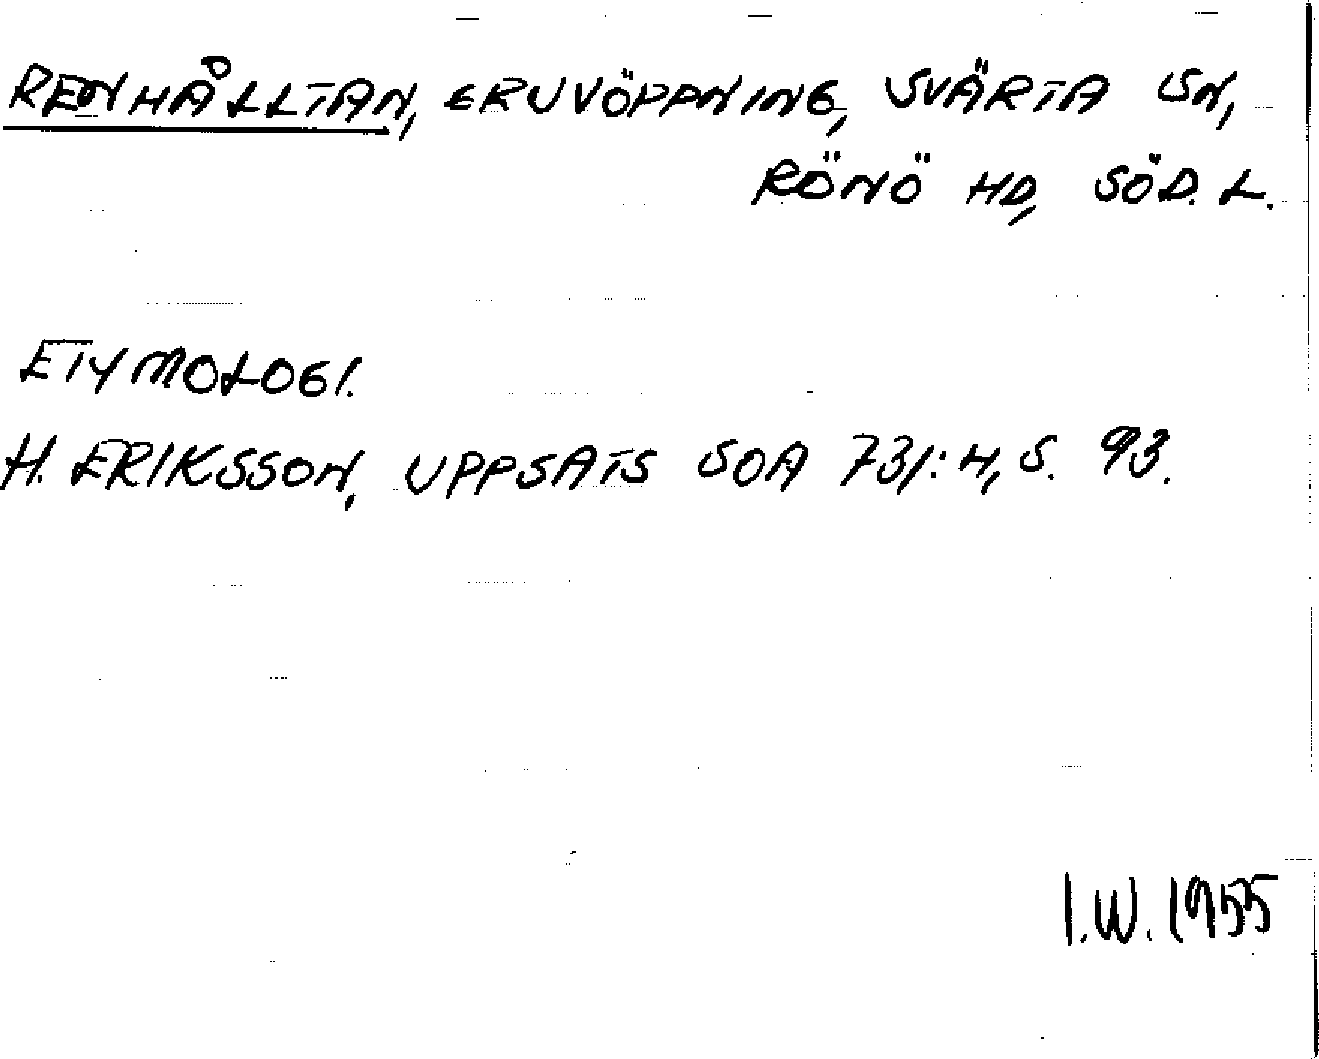 RENHÅLLTAN, GRUVÖPPNING, SVÄRTA SN,
RÖNÖ HD, SÖD. L.
ETYMOLOGI.
H. ERIKSSON, UPPSATS SOA 731:H, S. 93.
I.W. 1955